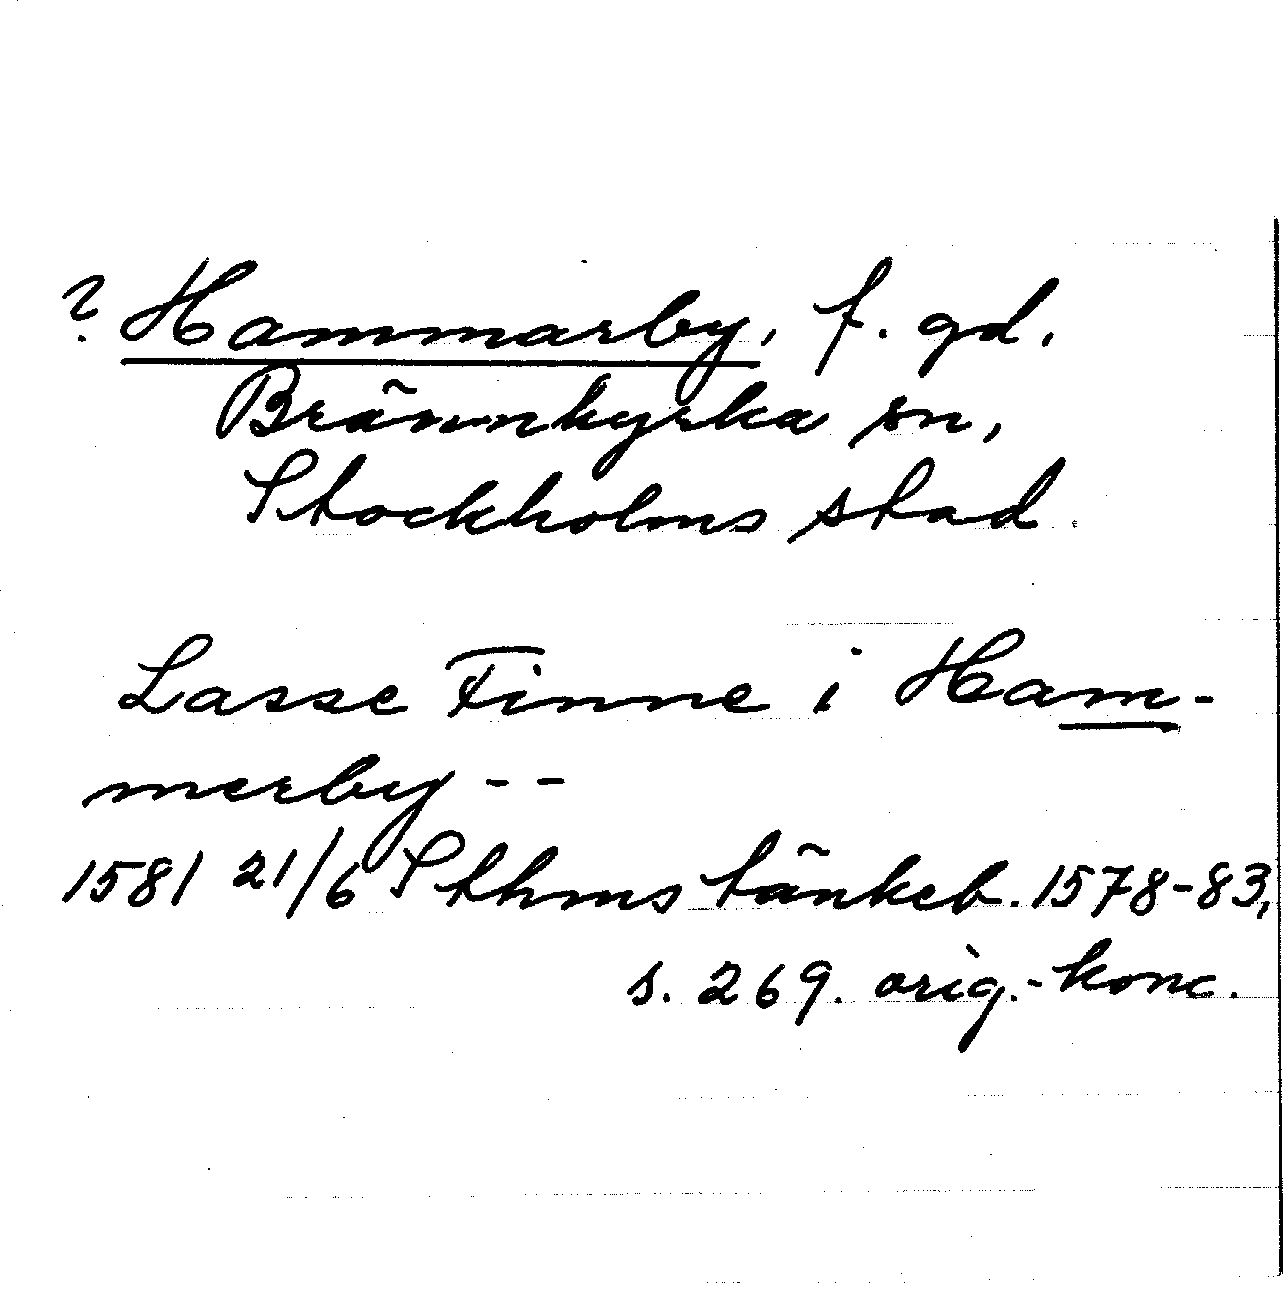 ? Hammarby, f. gd.
Brännkyrka sn,
Stockholms stad.
Lasse Finne i Ham-
merby --
1581 21/6 Sthms tänkeb. 1578-83,
s. 269. orig.-konc.